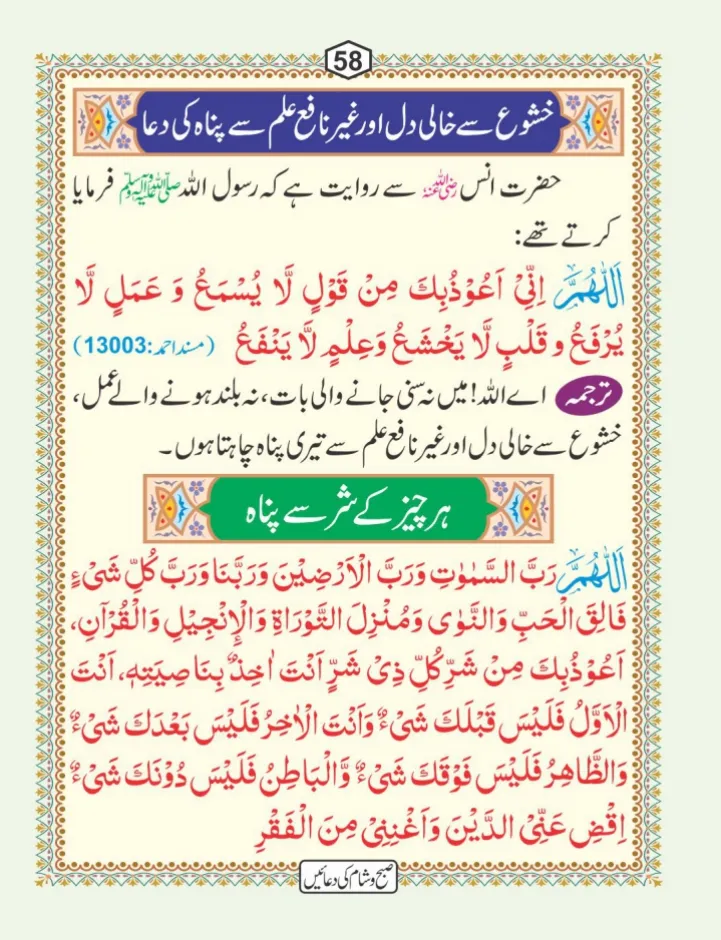 58
خشوع سے خالی دل اور غیر نافع علم سے پناہ کی دعا
حضرت انس رضی اللہ عنہ سے روایت ہے کہ رسول اللہ صلی اللہ علیہ وآلہ وسلم فرمایا
کرتے تھے:
اَللّٰهُمَّ اِنِّیْ اَعُوْذُبِكَ مِنْ قَوْلٍ لَّا یُسْمَعُ وَ عَمَلٍ لَّا
یُرْفَعُ و قَلْبٍ لَّا یَخْشَعُ وَعِلْمٍ لَّا یَنْفَعُ (مسند احمد:13003)
ترجمہ اے اللہ! میں نہ سنی جانے والی بات، نہ بلند ہونے والے عمل،
خشوع سے خالی دل اور غیر نافع علم سے تیری پناہ چاہتا ہوں۔
ہر چیز کے شر سے پناہ
اَللّٰهُمَّ رَبَّ السَّمٰوٰتِ وَرَبَّ الْاَرْضِیْنَ وَرَبَّنَا وَرَبَّ كُلِّ شَیْءٍ
فَالِقَ الْحَبِّ وَالنَّوٰی وَمُنْزِلَ التَّوْرَاةِ وَالْاِنْجِیْلِ وَالْقُرْآنِ،
اَعُوْذُبِكَ مِنْ شَرِّ كُلِّ ذِیْ شَرٍّ اَنْتَ اٰخِذٌ بِنَاصِیَتِهٖ، اَنْتَ
الْاَوَّلُ فَلَیْسَ قَبْلَكَ شَیْءٌ وَاَنْتَ الْاٰخِرُ فَلَیْسَ بَعْدَكَ شَیْءٌ
وَالظَّاهِرُ فَلَیْسَ فَوْقَكَ شَیْءٌ وَّالْبَاطِنُ فَلَیْسَ دُوْنَكَ شَیْءٌ
اِقْضِ عَنِّی الدَّیْنَ وَاَغْنِنِیْ مِنَ الْفَقْرِ
صبح و شام کی دعائیں